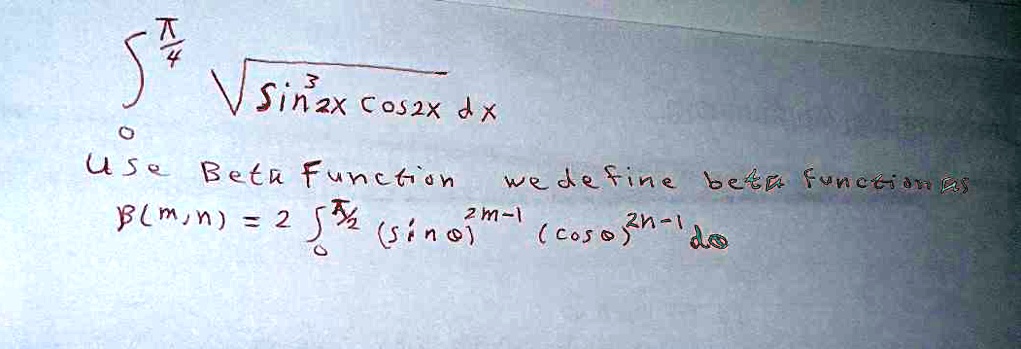 ∫₀^(π/4) √(sin³2x cos2x) dx
Use Beta Function we define beta function as
β(m,n) = 2 ∫₀^(π/2) (sinθ)^(2m-1) (cosθ)^(2n-1) dθ